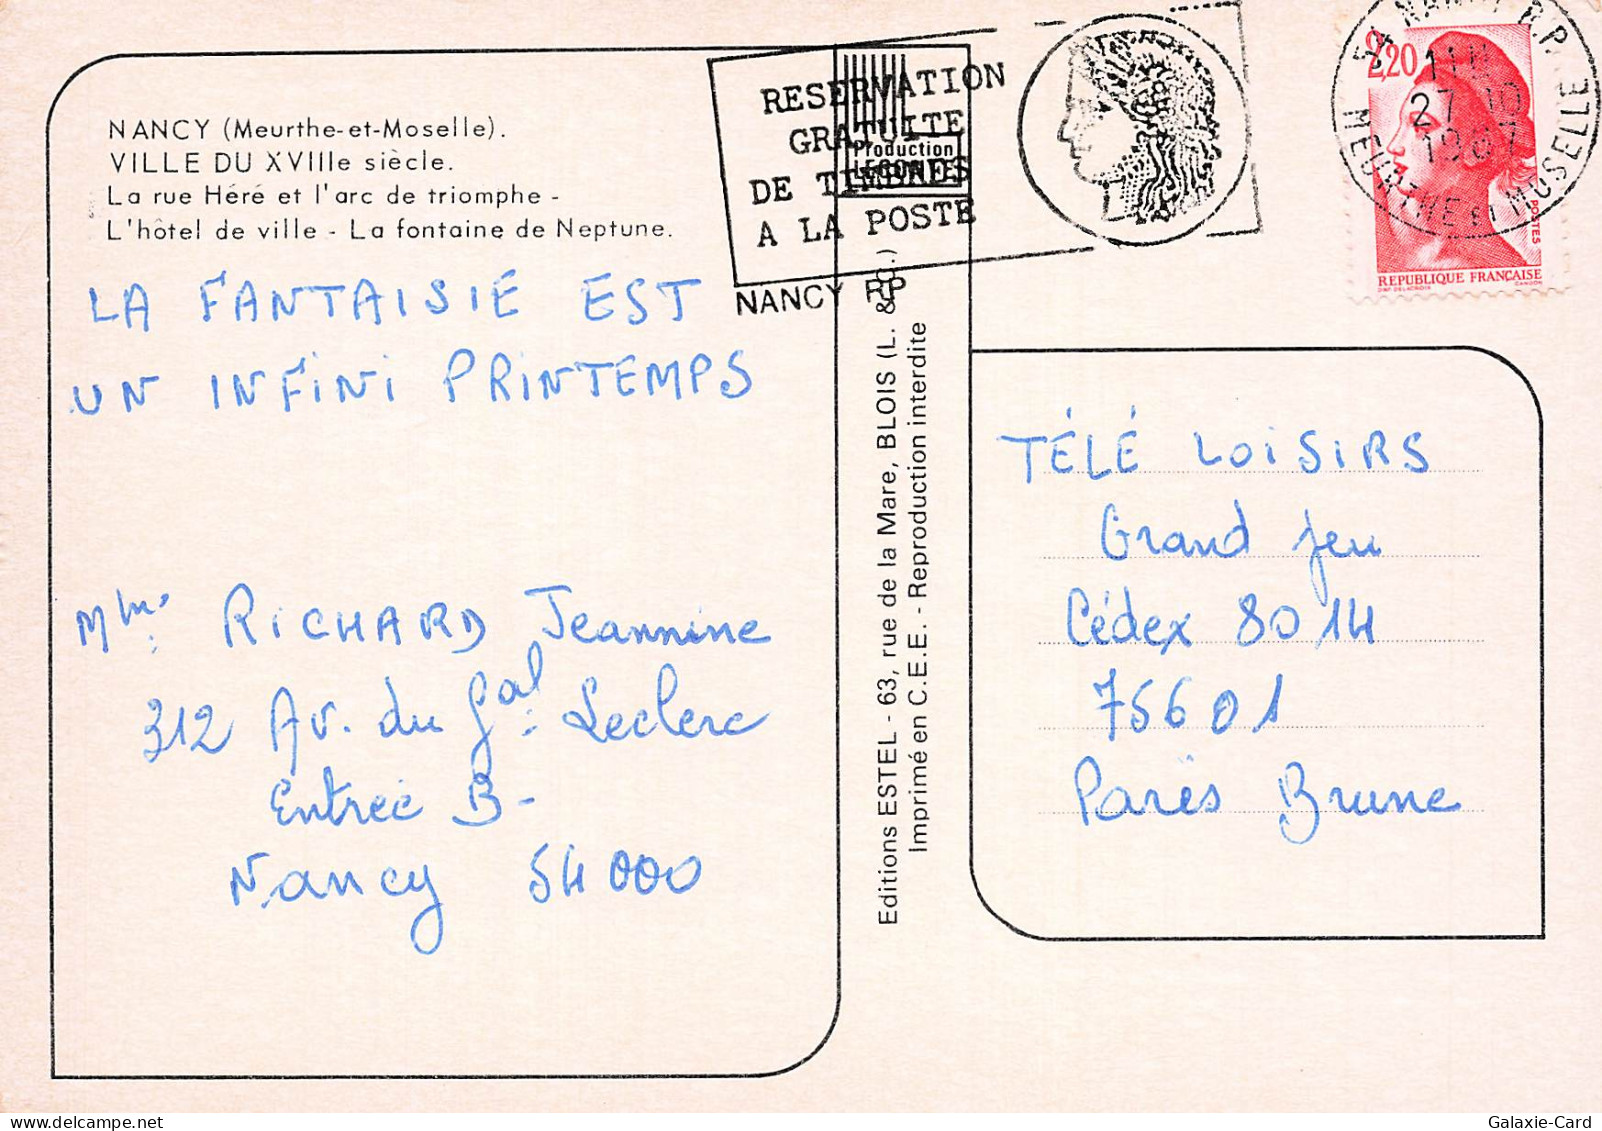 NANCY (Meurthe-et-Moselle).
VILLE DU XVIIIe siècle.
La rue Héré et l'arc de triomphe -
L'hôtel de ville - La fontaine de Neptune.
LA FANTAISIE EST
UN INFINI PRINTEMPS
Mme RICHARD Jeannine
312 Av. du Gal Leclerc
Entrée B-
Nancy 54000
RESERVATION
GRATUITE
DE TIMBRES
A LA POSTE
NANCY RP
Production
LECONTE
Editions ESTEL - 63, rue de la Mare, BLOIS (L. & C.)
Imprimé en C.E.E. - Reproduction interdite
54 NANCY R.P.
11H
27-10
1987
MEURTHE ET MOSELLE
2,20
POSTES
REPUBLIQUE FRANÇAISE
D'AP DELACROIX GANDON
TÉLÉ LOISIRS
Grand jeu
Cédex 8014
75601
Paris Brune
Galaxie-Card